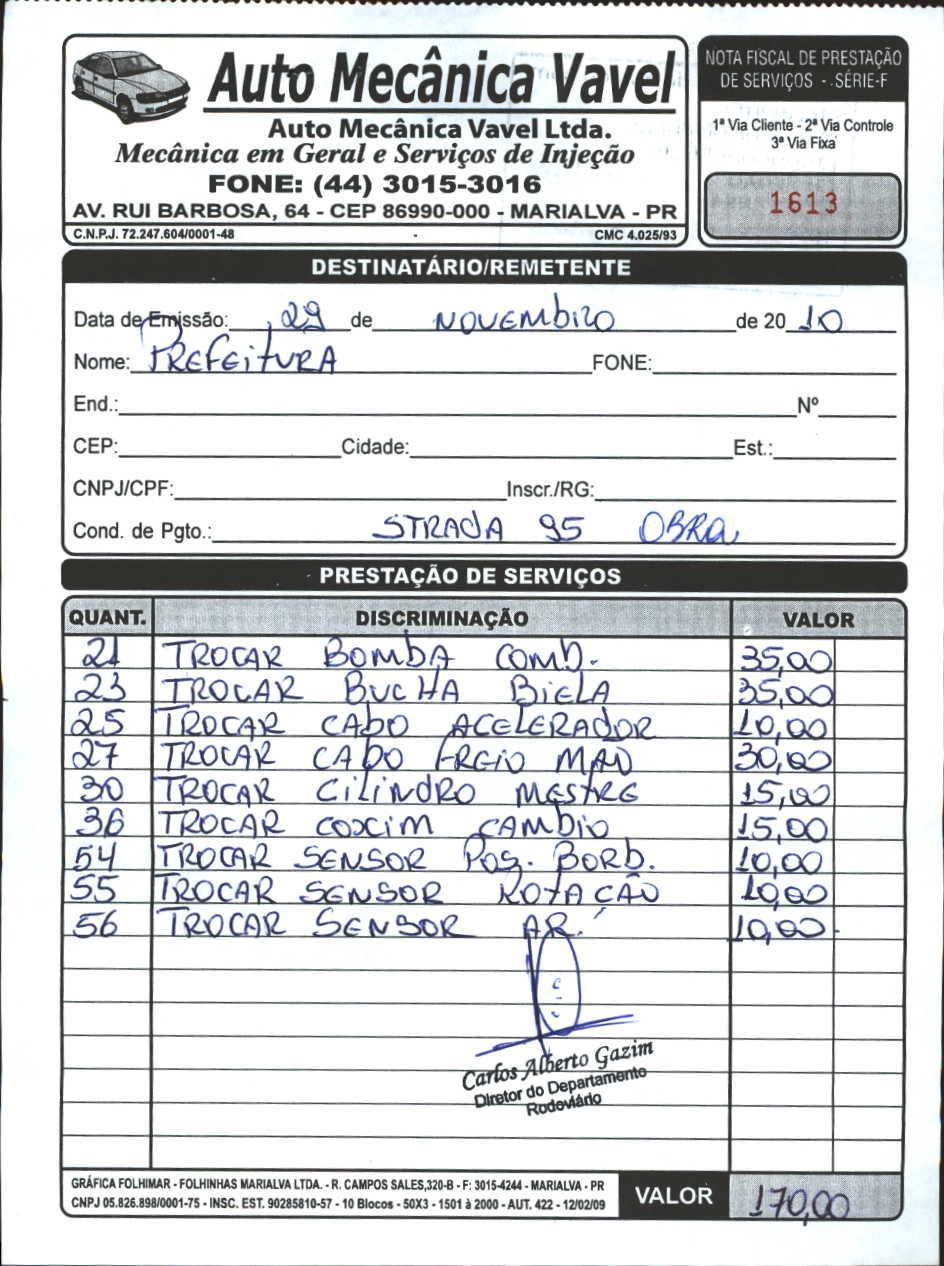 Auto Mecânica Vavel
Auto Mecânica Vavel Ltda.
Mecânica em Geral e Serviços de Injeção
FONE: (44) 3015-3016
AV. RUI BARBOSA, 64 - CEP 86990-000 - MARIALVA - PR
C.N.P.J. 72.247.604/0001-48 CMC 4.025/93
NOTA FISCAL DE PRESTAÇÃO
DE SERVIÇOS - SÉRIE-F
1ª Via Cliente - 2ª Via Controle
3ª Via Fixa
1613
DESTINATÁRIO/REMETENTE
Data de Emissão: 29 de NOVEMBRO de 2010
Nome: PREFEITURA FONE:
End.: Nº
CEP: Cidade: Est.:
CNPJ/CPF: Inscr./RG:
Cond. de Pgto.: STRADA 95 OBRA
PRESTAÇÃO DE SERVIÇOS
QUANT. DISCRIMINAÇÃO VALOR
21 TROCAR BOMBA COMB. 35,00
23 TROCAR BUCHA BIELA 35,00
25 TROCAR CABO ACELERADOR 10,00
27 TROCAR CABO FREIO MAO 30,00
30 TROCAR CILINDRO MESTRE 15,00
36 TROCAR COXIM CAMBIO 15,00
54 TROCAR SENSOR POS. BORB. 10,00
55 TROCAR SENSOR ROTACÃO 10,00
56 TROCAR SENSOR AR. 10,00
Carlos Alberto Gazim
Diretor do Departamento
Rodoviário
GRÁFICA FOLHIMAR - FOLHINHAS MARIALVA LTDA. - R. CAMPOS SALES,320-B - F: 3015-4244 - MARIALVA - PR
CNPJ 05.826.898/0001-75 - INSC. EST. 90285810-57 - 10 Blocos - 50X3 - 1501 à 2000 - AUT. 422 - 12/02/09
VALOR 170,00